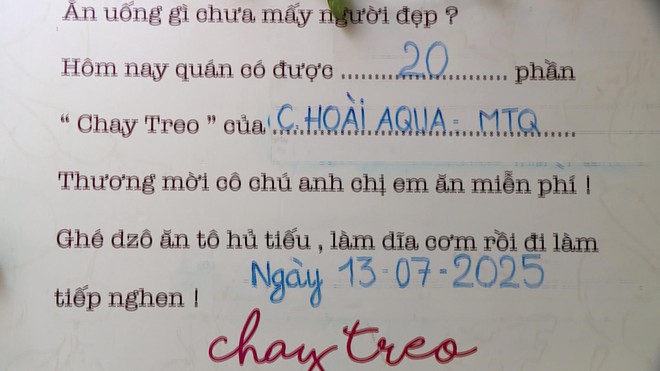 Ăn uống gì chưa mấy người đẹp ?
Hôm nay quán có được ........20........ phần
“ Chay Treo ” của C. HOÀI AQUA - MTQ
Thương mời cô chú anh chị em ăn miễn phí !
Ghé dzô ăn tô hủ tiếu , làm dĩa cơm rồi đi làm
tiếp nghen ! Ngày 13-07-2025
chay treo